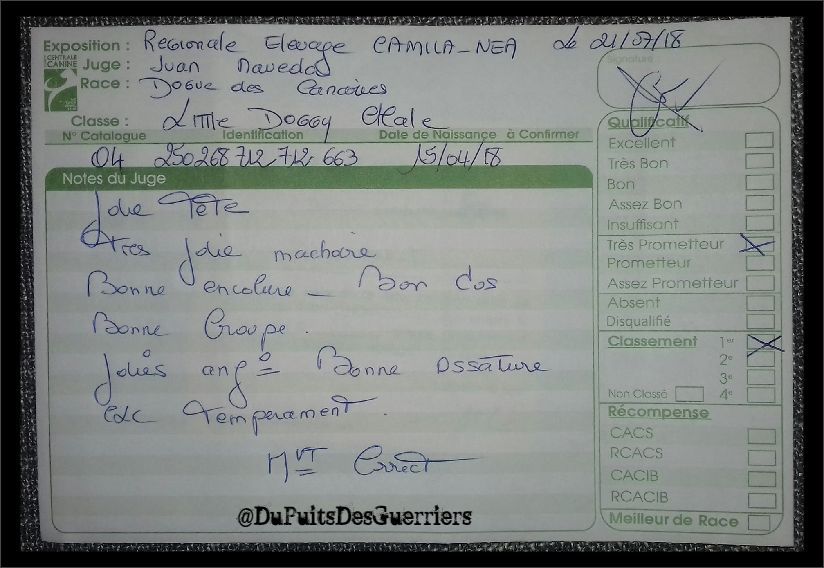 Exposition : Regionale Elevage CAMILA-NEA le 21/07/18
CENTRALE CANINE
Juge : Juan Navedas
Race : Dogue des Canaries
Classe : Little Doggy Male
N° Catalogue Identification Date de Naissance à Confirmer
04 250 268 712 712 663 15/04/18
Notes du Juge
Jolie Tête
Très jolie machoire
Bonne encolure - Bon dos
Bonne Croupe.
Jolies ang° Bonne ossature
exc temperament.
Mvt Correct
@DuPuitsDesGuerriers
Signature :
Qualificatif
Excellent
Très Bon
Bon
Assez Bon
Insuffisant
Très Prometteur X
Prometteur
Assez Prometteur
Absent
Disqualifié
Classement 1er X
2e
3e
Non Classé 4e
Récompense
CACS
RCACS
CACIB
RCACIB
Meilleur de Race